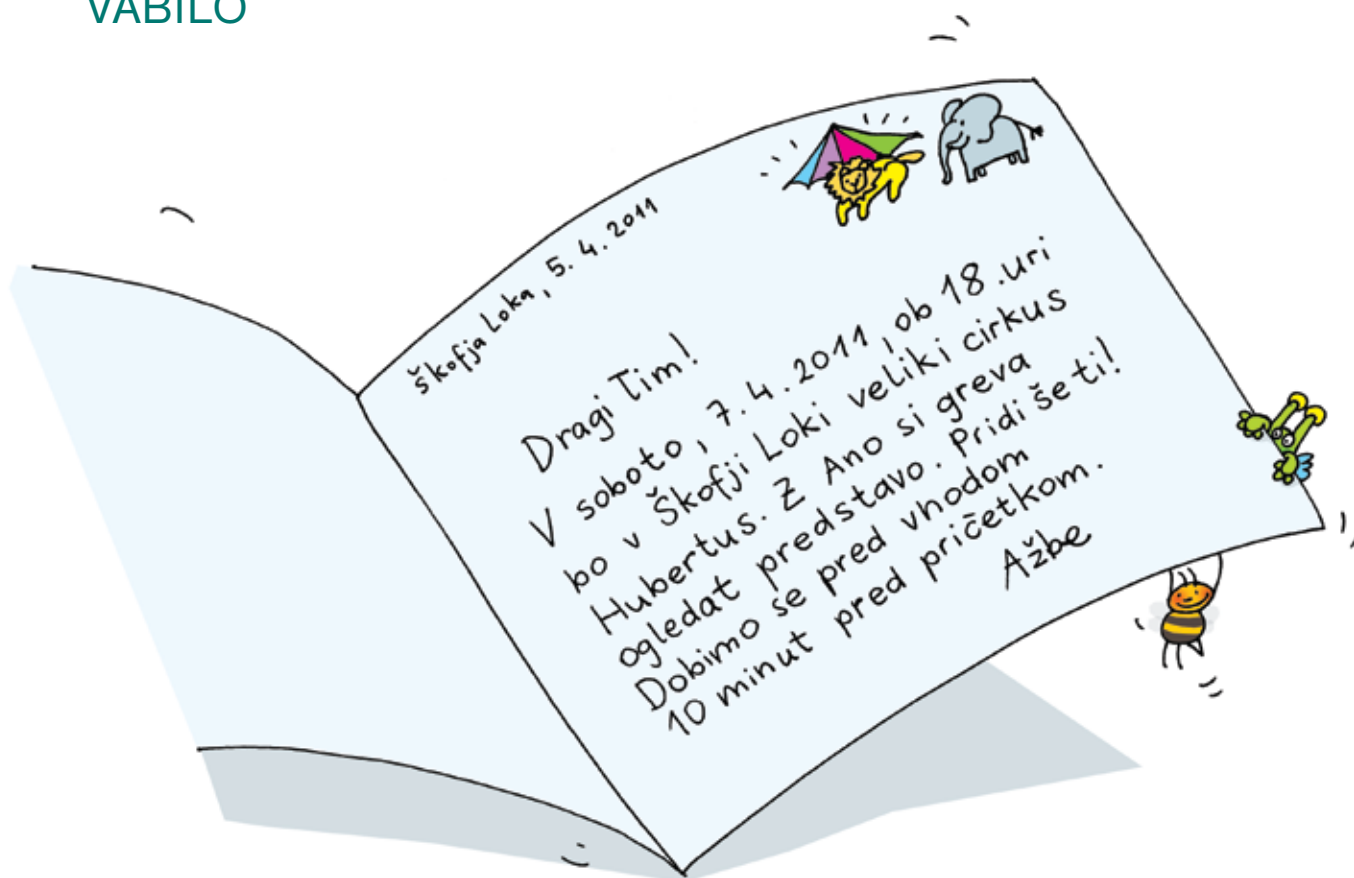 VABILO
Škofja Loka, 5. 4. 2011
Dragi Tim!
V soboto, 7. 4. 2011, ob 18. uri
bo v Škofji Loki veliki cirkus
Hubertus. Z Ano si greva
ogledat predstavo. Pridi še ti!
Dobimo se pred vhodom
10 minut pred pričetkom.
Ažbe